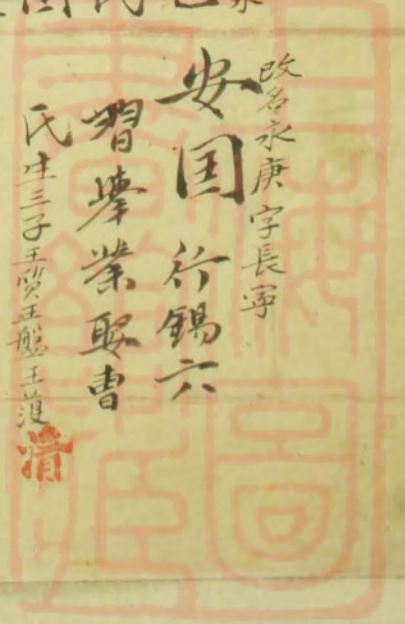 改名永庚字長寧
安国行錫六
習舉業娶曹
氏生三子玉質玉盤玉
清